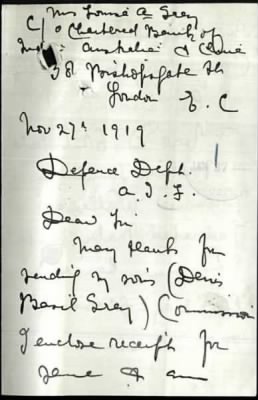 Mrs Louisa A Grey
C/o Chartered Bank of
India Australia & China
38 Bishopsgate St
London E. C
Nov 27th 1919
Defence Dept.
A. I. F.
Dear Sir
Many thanks for
sending my son's (Denis
Basil Grey) Commission
I enclose receipt for
same & am